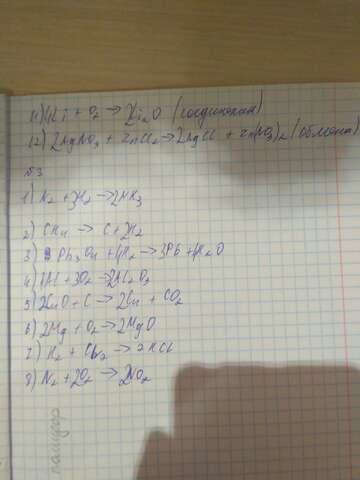 11) 4Li + O₂ → 2Li₂O (соединения)
12) 2AgNO₃ + ZnCl₂ → 2AgCl + Zn(NO₃)₂ (обмена)
№3
1) N₂ + 3H₂ → 2NH₃
2) CH₄ → C + 2H₂
3) Pb₃O₄ + 4H₂ → 3Pb + 4H₂O
4) 4Al + 3O₂ → 2Al₂O₃
5) 2CuO + C → 2Cu + CO₂
6) 2Mg + O₂ → 2MgO
7) H₂ + Cl₂ → 2HCl
8) N₂ + 2O₂ → 2NO₂